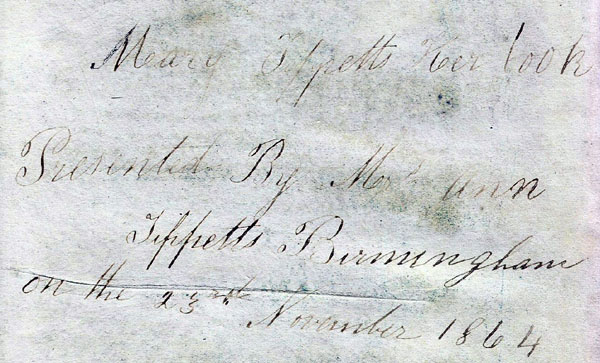 Mary Tippetts Her book
Presented By Mrs Ann
Tippetts Birmingham
on the 23rd
November 1864